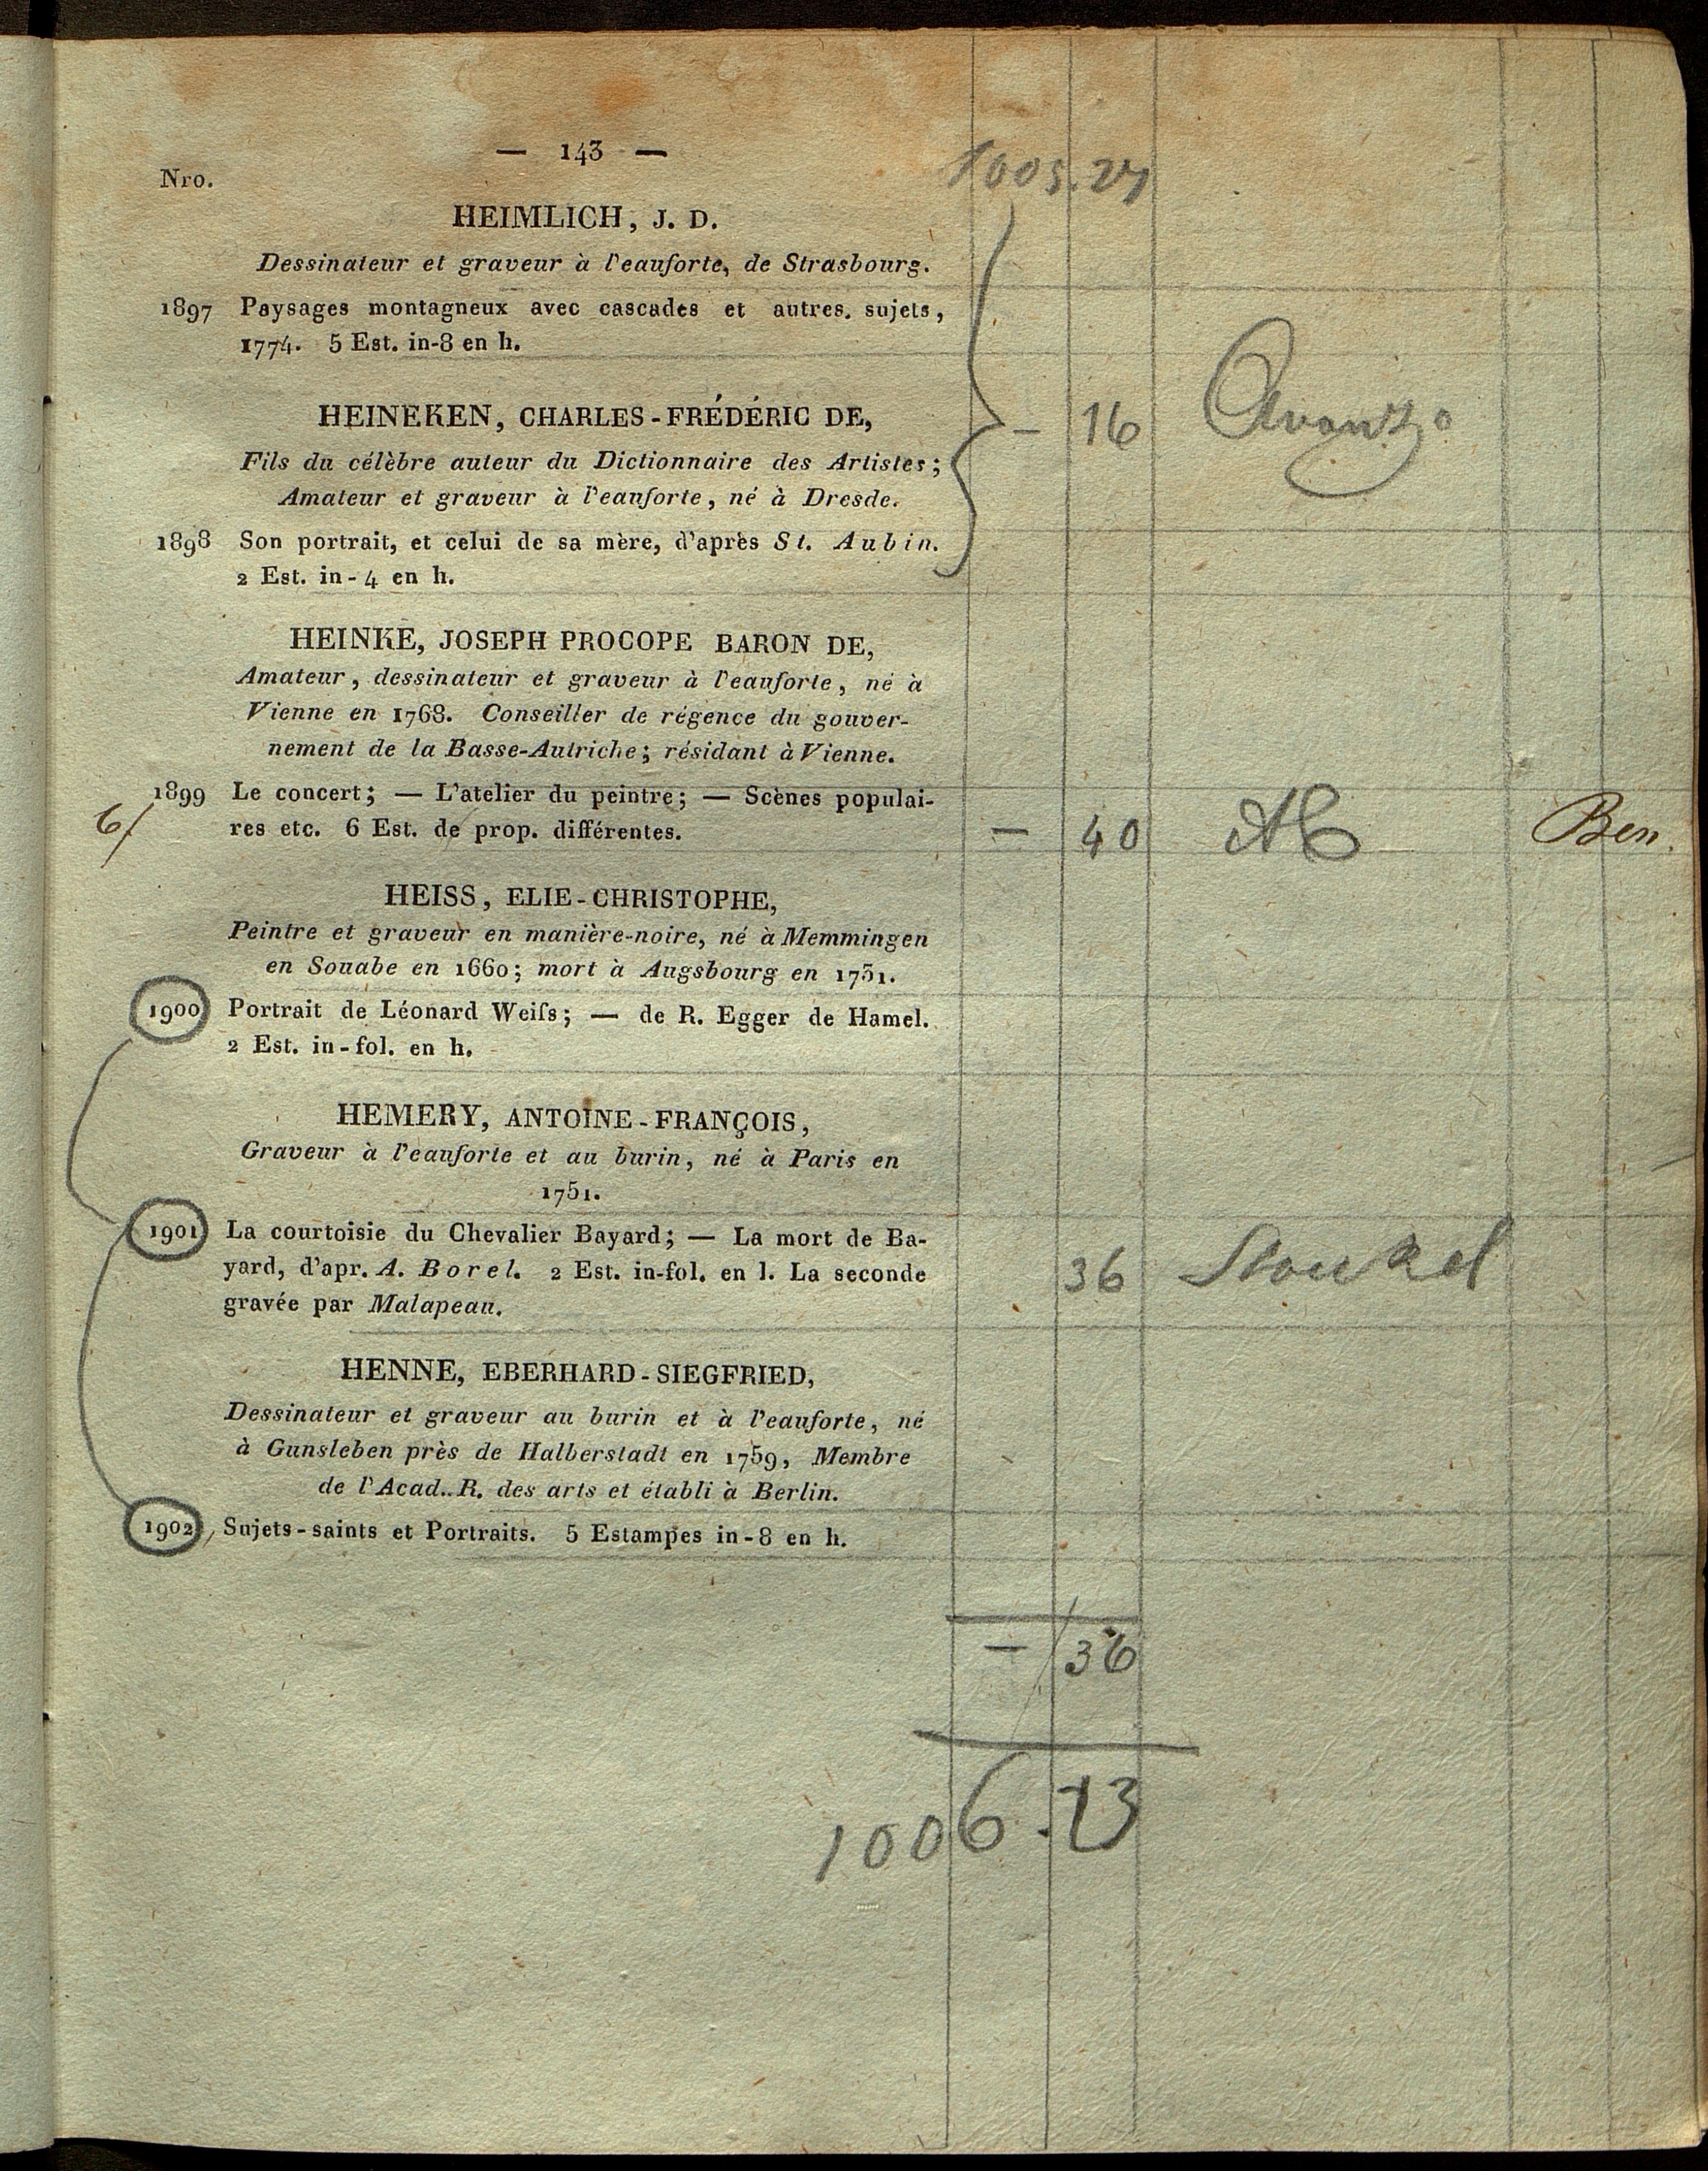 — 143 —
1005.27
Nro.
HEIMLICH, J. D.
Dessinateur et graveur à l'eauforte, de Strasbourg.
1897 Paysages montagneux avec cascades et autres. sujets,
1774. 5 Est. in-8 en h.
HEINEKEN, CHARLES-FRÉDÉRIC DE,
— 16 Avanzo
Fils du célèbre auteur du Dictionnaire des Artistes;
Amateur et graveur à l'eauforte, né à Dresde.
1898 Son portrait, et celui de sa mère, d'après St. Aubin.
2 Est. in-4 en h.
HEINKE, JOSEPH PROCOPE BARON DE,
Amateur, dessinateur et graveur à l'eauforte, né à
Vienne en 1768. Conseiller de régence du gouver-
nement de la Basse-Autriche; résidant à Vienne.
1899 Le concert; — L'atelier du peintre; — Scènes populai-
6/ res etc. 6 Est. de prop. différentes. — 40 Ben
HEISS, ELIE-CHRISTOPHE,
Peintre et graveur en manière-noire, né à Memmingen
en Souabe en 1660; mort à Augsbourg en 1731.
1900 Portrait de Léonard Weiſs; — de R. Egger de Hamel.
2 Est. in-fol. en h.
HEMERY, ANTOINE-FRANÇOIS,
Graveur à l'eauforte et au burin, né à Paris en
1751.
1901 La courtoisie du Chevalier Bayard; — La mort de Ba-
yard, d'apr. A. Borel. 2 Est. in-fol. en l. La seconde 36
gravée par Malapeau.
HENNE, EBERHARD-SIEGFRIED,
Dessinateur et graveur au burin et à l'eauforte, né
à Gunsleben près de Halberstadt en 1759, Membre
de l'Acad.. R. des arts et établi à Berlin.
1902, Sujets-saints et Portraits. 5 Estampes in-8 en h.
— 36
1006.